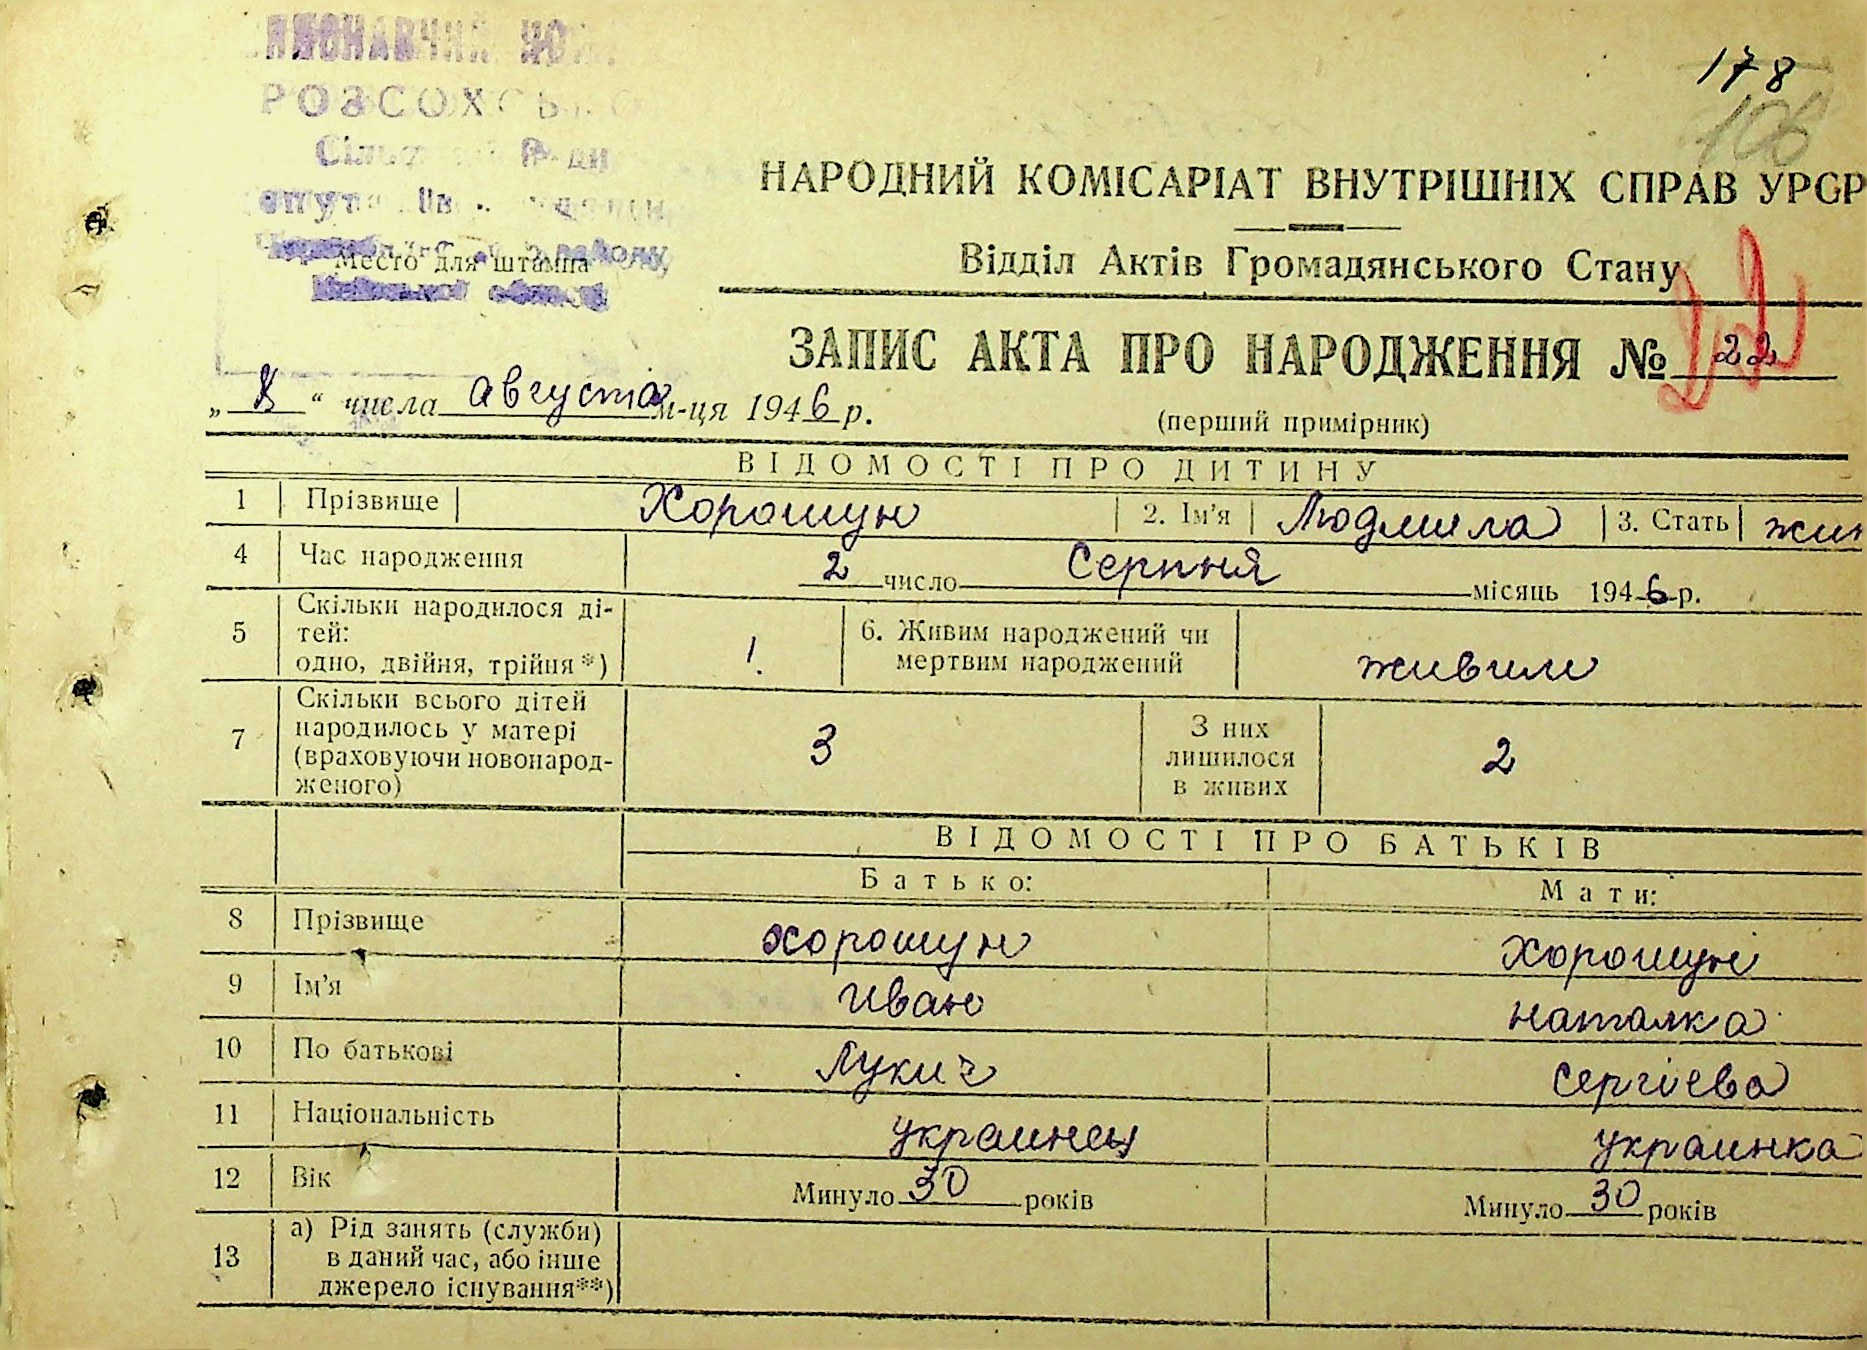 РОЗСОХСЬКО
178
106
НАРОДНИЙ КОМІСАРІАТ ВНУТРІШНІХ СПРАВ УРСР
Відділ Актів Громадянського Стану
Место для штампа
ЗАПИС АКТА ПРО НАРОДЖЕННЯ № 22
22
„8“ числа августа м-ця 1946 р.
(перший примірник)
ВІДОМОСТІ ПРО ДИТИНУ
1 Прізвище Хорошун 2. Ім'я Людмила 3. Стать жін
4 Час народження 2 число Серпня місяць 1946 р.
5 Скільки народилося ді-
тей:
одно, двійня, трійня*) 1.
6. Живим народжений чи
мертвим народжений живим
7 Скільки всього дітей
народилось у матері
(враховуючи новонарод-
женого) 3
З них
лишилося
в живих 2
ВІДОМОСТІ ПРО БАТЬКІВ
Батько: Мати:
8 Прізвище Хорошун Хорошун
9 Ім'я Иван Наталка
10 По батькові Лукич Сергієва
11 Національність украинец украинка
12 Вік Минуло 30 років Минуло 30 років
13 а) Рід занять (служби)
в даний час, або інше
джерело існування**)